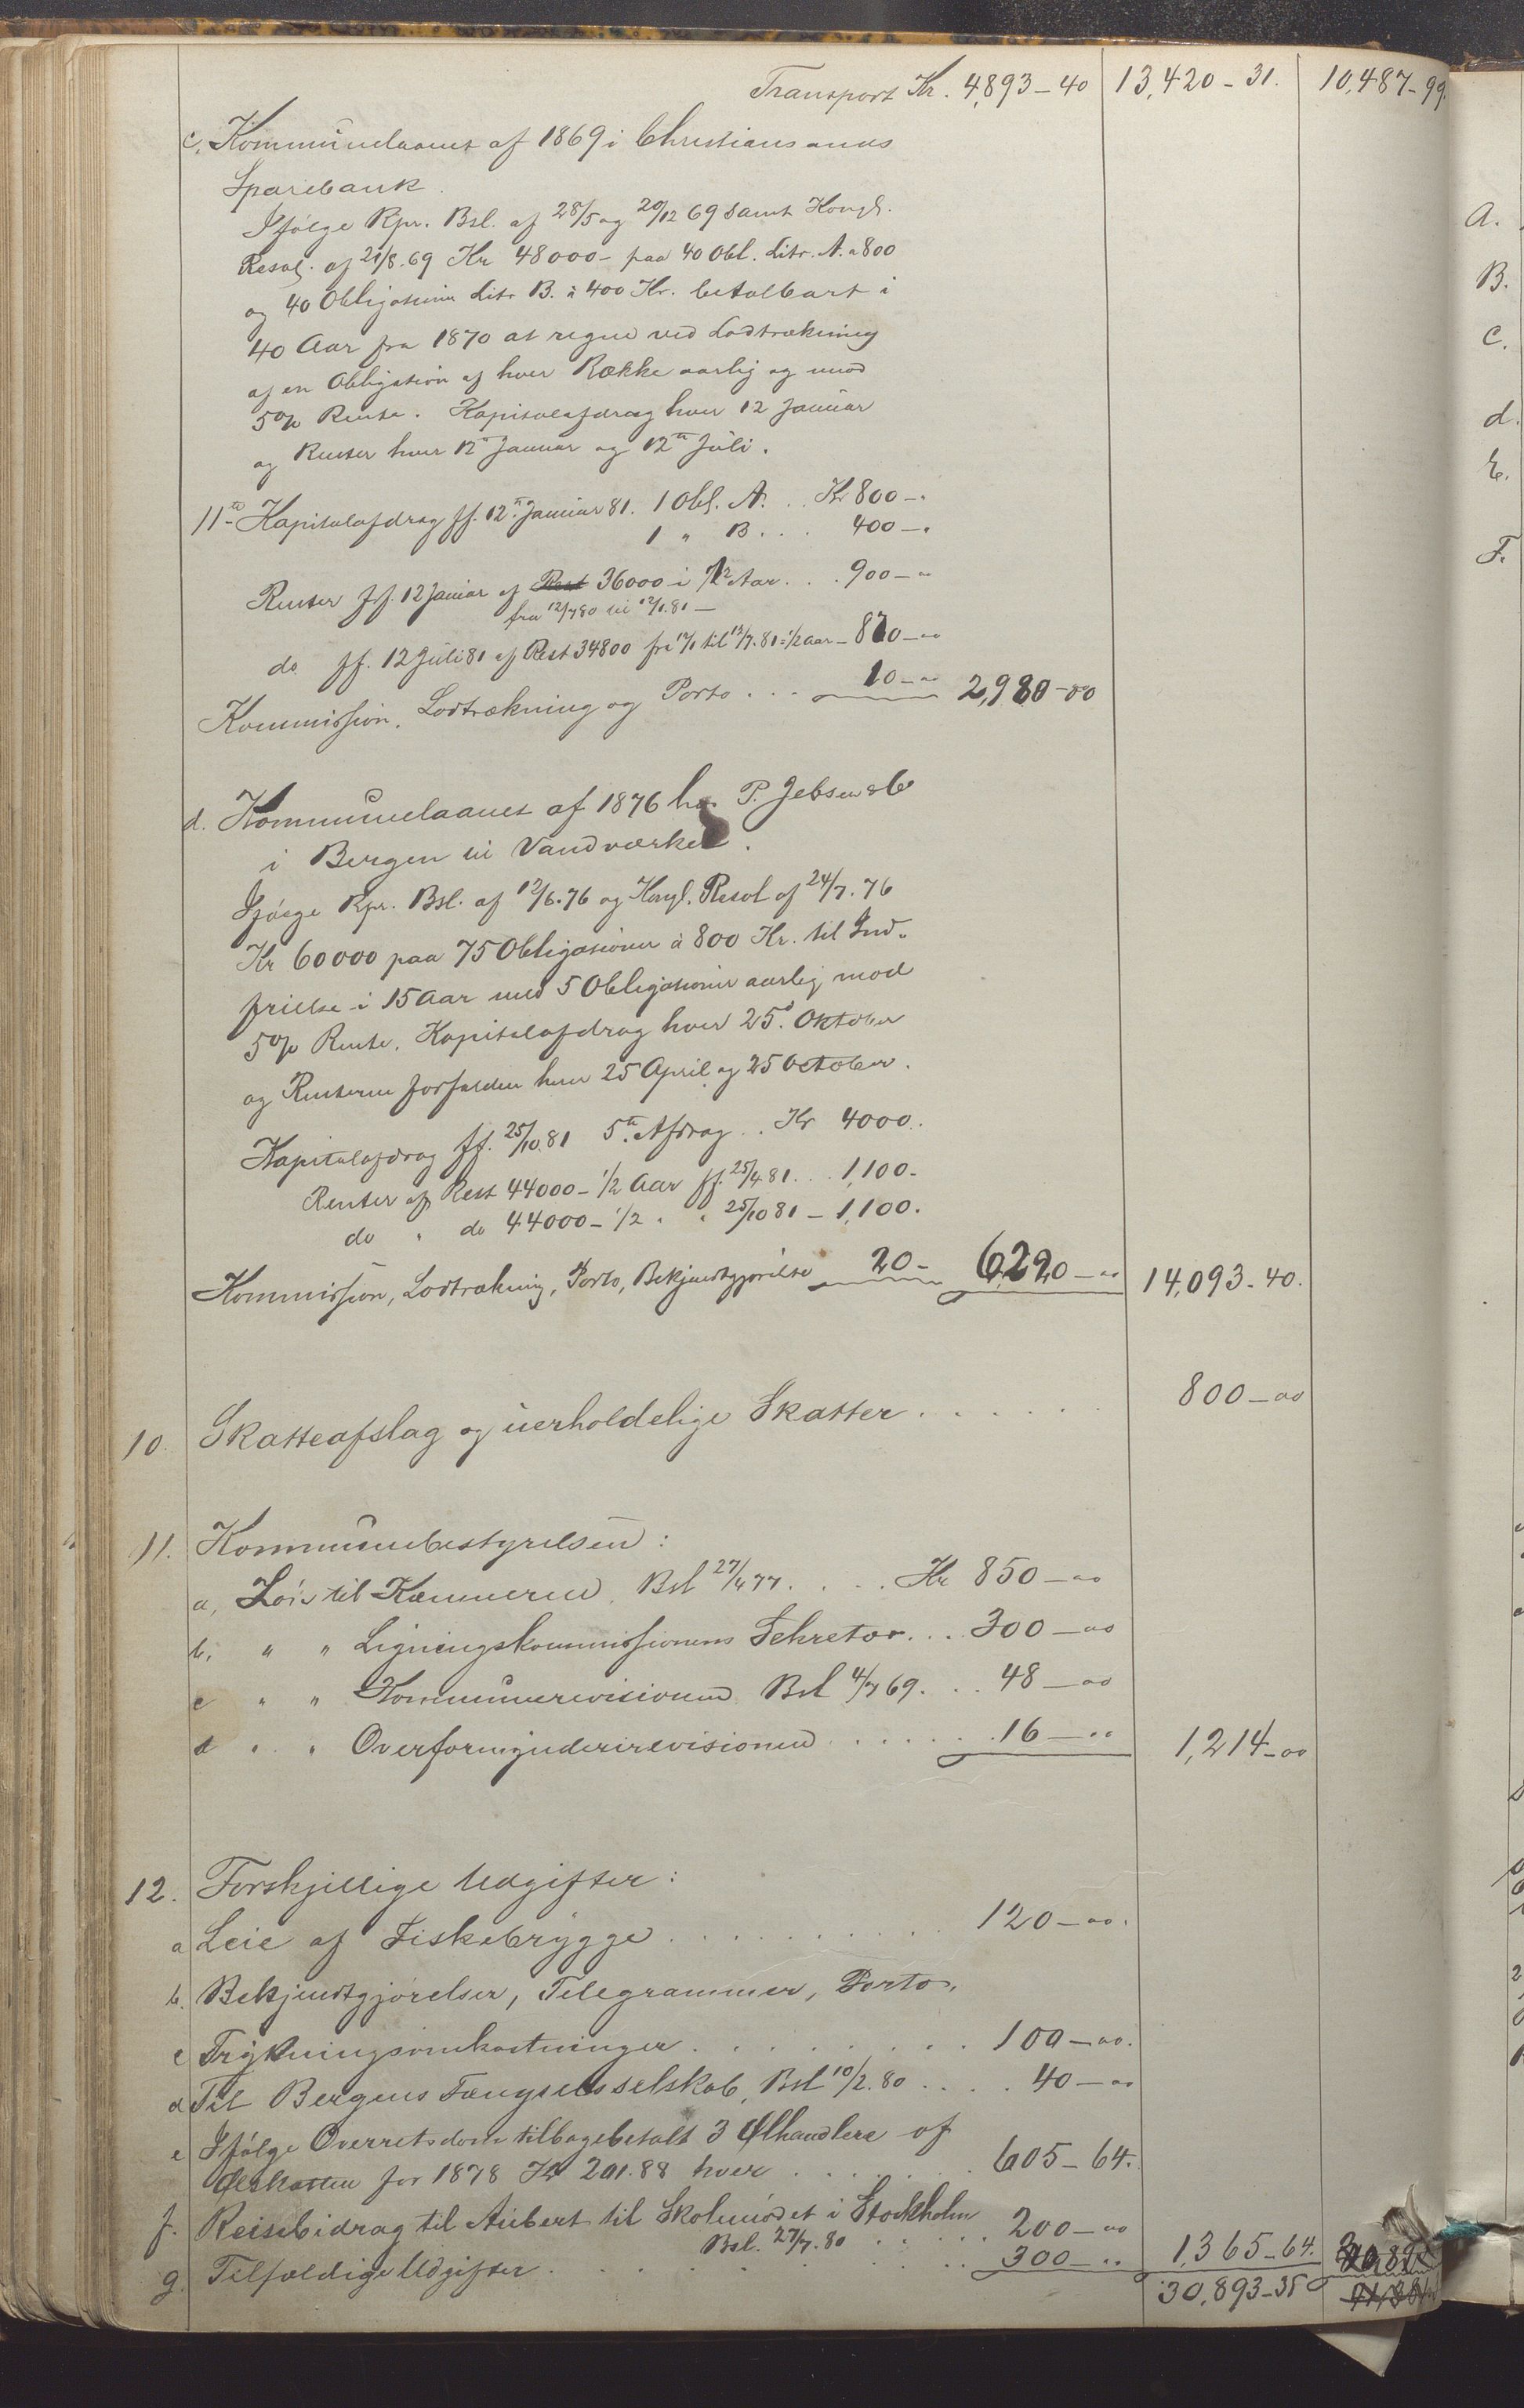 Transport Kr. 4,893-40 13,420-31. 10,487-99.
c. Kommunelaanet af 1869 i Christiansands
Sparebank.
Ifølge Rpr. Bsl. af 28/5 og 20/12 69 samt Kongl.
Resol. af 21/8.69 Kr 48000- paa 40 Obl. Litr. A. a 800
og 40 Obligationer Litr B. à 400 Kr. betalbart i
40 Aar fra 1870 at regne ved Lodtrækning
af en Obligation af hver Række aarlig og mod
5% Rente. Kapitalafdrag hver 12 Januar
og Renter hver 12te Januar og 12te Juli.
11te Kapitalafdrag ff. 12te Januar 81. 1 Obl. A. . . Kr 800-"
1 " B. . . . 400-"
Renter ff. 12 Januar af Rest 36000 i 1/2 Aar . . . 900-"
fra 12/7 80 til 12/1.81 -
do ff. 12 Juli 81 af Rest 34800 fra 12/1 til 12/7.81 = 1/2 Aar - 870-00
Kommission, Lodtrækning og Porto . . . 10-00 2,980-00
d. Kommunelaanet af 1876 hos P. Jebsen & Co
i Bergen til Vandværket.
Ifølge Rpr. Bsl. af 12/6.76 og Kongl. Resol af 24/7.76
Kr 60000 paa 75 Obligationer à 800 Kr. til Ind-
frielse i 15 Aar med 5 Obligationer aarlig mod
5% Rente. Kapitalafdrag hver 25de Oktober
og Renterne forfalden hver 25 April og 25 October.
Kapitalafdrag ff. 25/10.81 5te Afdrag . . Kr 4000.
Renter af Rest 44000- 1/2 Aar ff. 25/4 81. . . 1,100-
do " do 44000- 1/2 " " 25/10 81 - 1,100.
Kommission, Lodtrækning, Porto, Bekjendtgjørelse 20- 6,220-00 14,093-40.
10. Skatteafslag og uerholdelige Skatter . . . . . . 800-00
11. Kommunebestyrelsen:
a, Løn til Kæmneren, Bsl 27/4 77. . . . . Kr 850-00
b, " " Ligningskommissionens Sekretær. . . 300-00
c " " Kommunerevisionen Bsl 4/7 69. . . 48-00
d " " Overformynderirevisionen . . . . . . 16-00 1,214-00
12. Forskjellige Udgifter:
a Leie af Fiskebrygge . . . . . . . . . . . 120-00.
b. Bekjendtgjørelser, Telegrammer, Porto,
c Trykningsomkostninger . . . . . . . . . 100-00.
d Til Bergens Fængselsselskab, Bsl 10/2.80 . . . . 40-00
e Ifølge Overretsdom tilbagebetalt 3 Ølhandlere af
Ølskatten for 1878 Kr 201.88 hver . . . . . . 605-64.
f. Reisebidrag til Aubert til Skolemødet i Stockholm
Bsl. 27/7.80 . . . . . 200-00
g. Tilfældige Udgifter . . . . . . . . . . . 300-00 1,365-64.
30,893-35
A.
B.
C.
d.
E.
F.